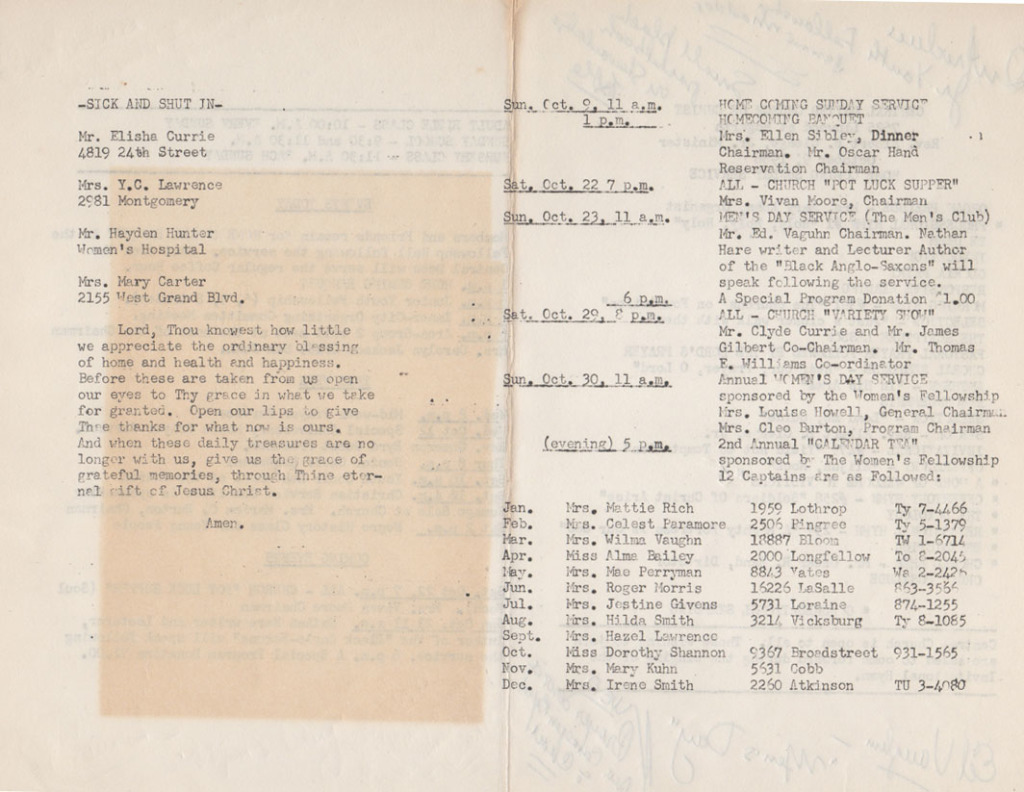 -SICK AND SHUT IN-
Mr. Elisha Currie
4819 24th Street
Mrs. Y.C. Lawrence
2981 Montgomery
Mr. Hayden Hunter
Women's Hospital
Mrs. Mary Carter
2155 West Grand Blvd.
Lord, Thou knowest how little
we appreciate the ordinary blessing
of home and health and happiness.
Before these are taken from us open
our eyes to Thy grace in what we take
for granted. Open our lips to give
Thee thanks for what now is ours.
And when these daily treasures are no
longer with us, give us the grace of
grateful memories, through Thine eter-
nal gift of Jesus Christ.
Amen.
Sun. Oct. 9, 11 a.m. HOME COMING SUNDAY SERVICE
1 p.m. HOMECOMING BANQUET
Mrs. Ellen Sibley, Dinner
Chairman. Mr. Oscar Hand
Reservation Chairman
Sat. Oct. 22 7 p.m. ALL - CHURCH "POT LUCK SUPPER"
Mrs. Vivan Moore, Chairman
Sun. Oct. 23, 11 a.m. MEN'S DAY SERVICE (The Men's Club)
Mr. Ed. Vaguhn Chairman. Nathan
Hare writer and Lecturer Author
of the "Black Anglo-Saxons" will
speak following the service.
6 p.m. A Special Program Donation $1.00
Sat. Oct. 29, 8 p.m. ALL - CHURCH "VARIETY SHOW"
Mr. Clyde Currie and Mr. James
Gilbert Co-Chairman. Mr. Thomas
E. Williams Co-ordinator
Sun. Oct. 30, 11 a.m. Annual WOMEN'S DAY SERVICE
sponsored by the Women's Fellowship
Mrs. Louise Howell, General Chairman
Mrs. Cleo Burton, Program Chairman
(evening) 5 p.m. 2nd Annual "CALENDAR TEA"
sponsored by The Women's Fellowship
12 Captains are as Followed:
Jan. Mrs. Mattie Rich 1959 Lothrop Ty 7-4466
Feb. Mrs. Celest Paramore 2506 Pingree Ty 5-1379
Mar. Mrs. Wilma Vaughn 18887 Bloom TW 1-6714
Apr. Miss Alma Bailey 2000 Longfellow To 8-2045
May. Mrs. Mae Perryman 8843 Yates Wa 2-242
Jun. Mrs. Roger Morris 16226 LaSalle 863-3586
Jul. Mrs. Jestine Givens 5731 Loraine 874-1255
Aug. Mrs. Hilda Smith 3214 Vicksburg Ty 8-1085
Sept. Mrs. Hazel Lawrence
Oct. Miss Dorothy Shannon 9367 Broadstreet 931-1565
Nov. Mrs. Mary Kuhn 5631 Cobb
Dec. Mrs. Irene Smith 2260 Atkinson TU 3-4080